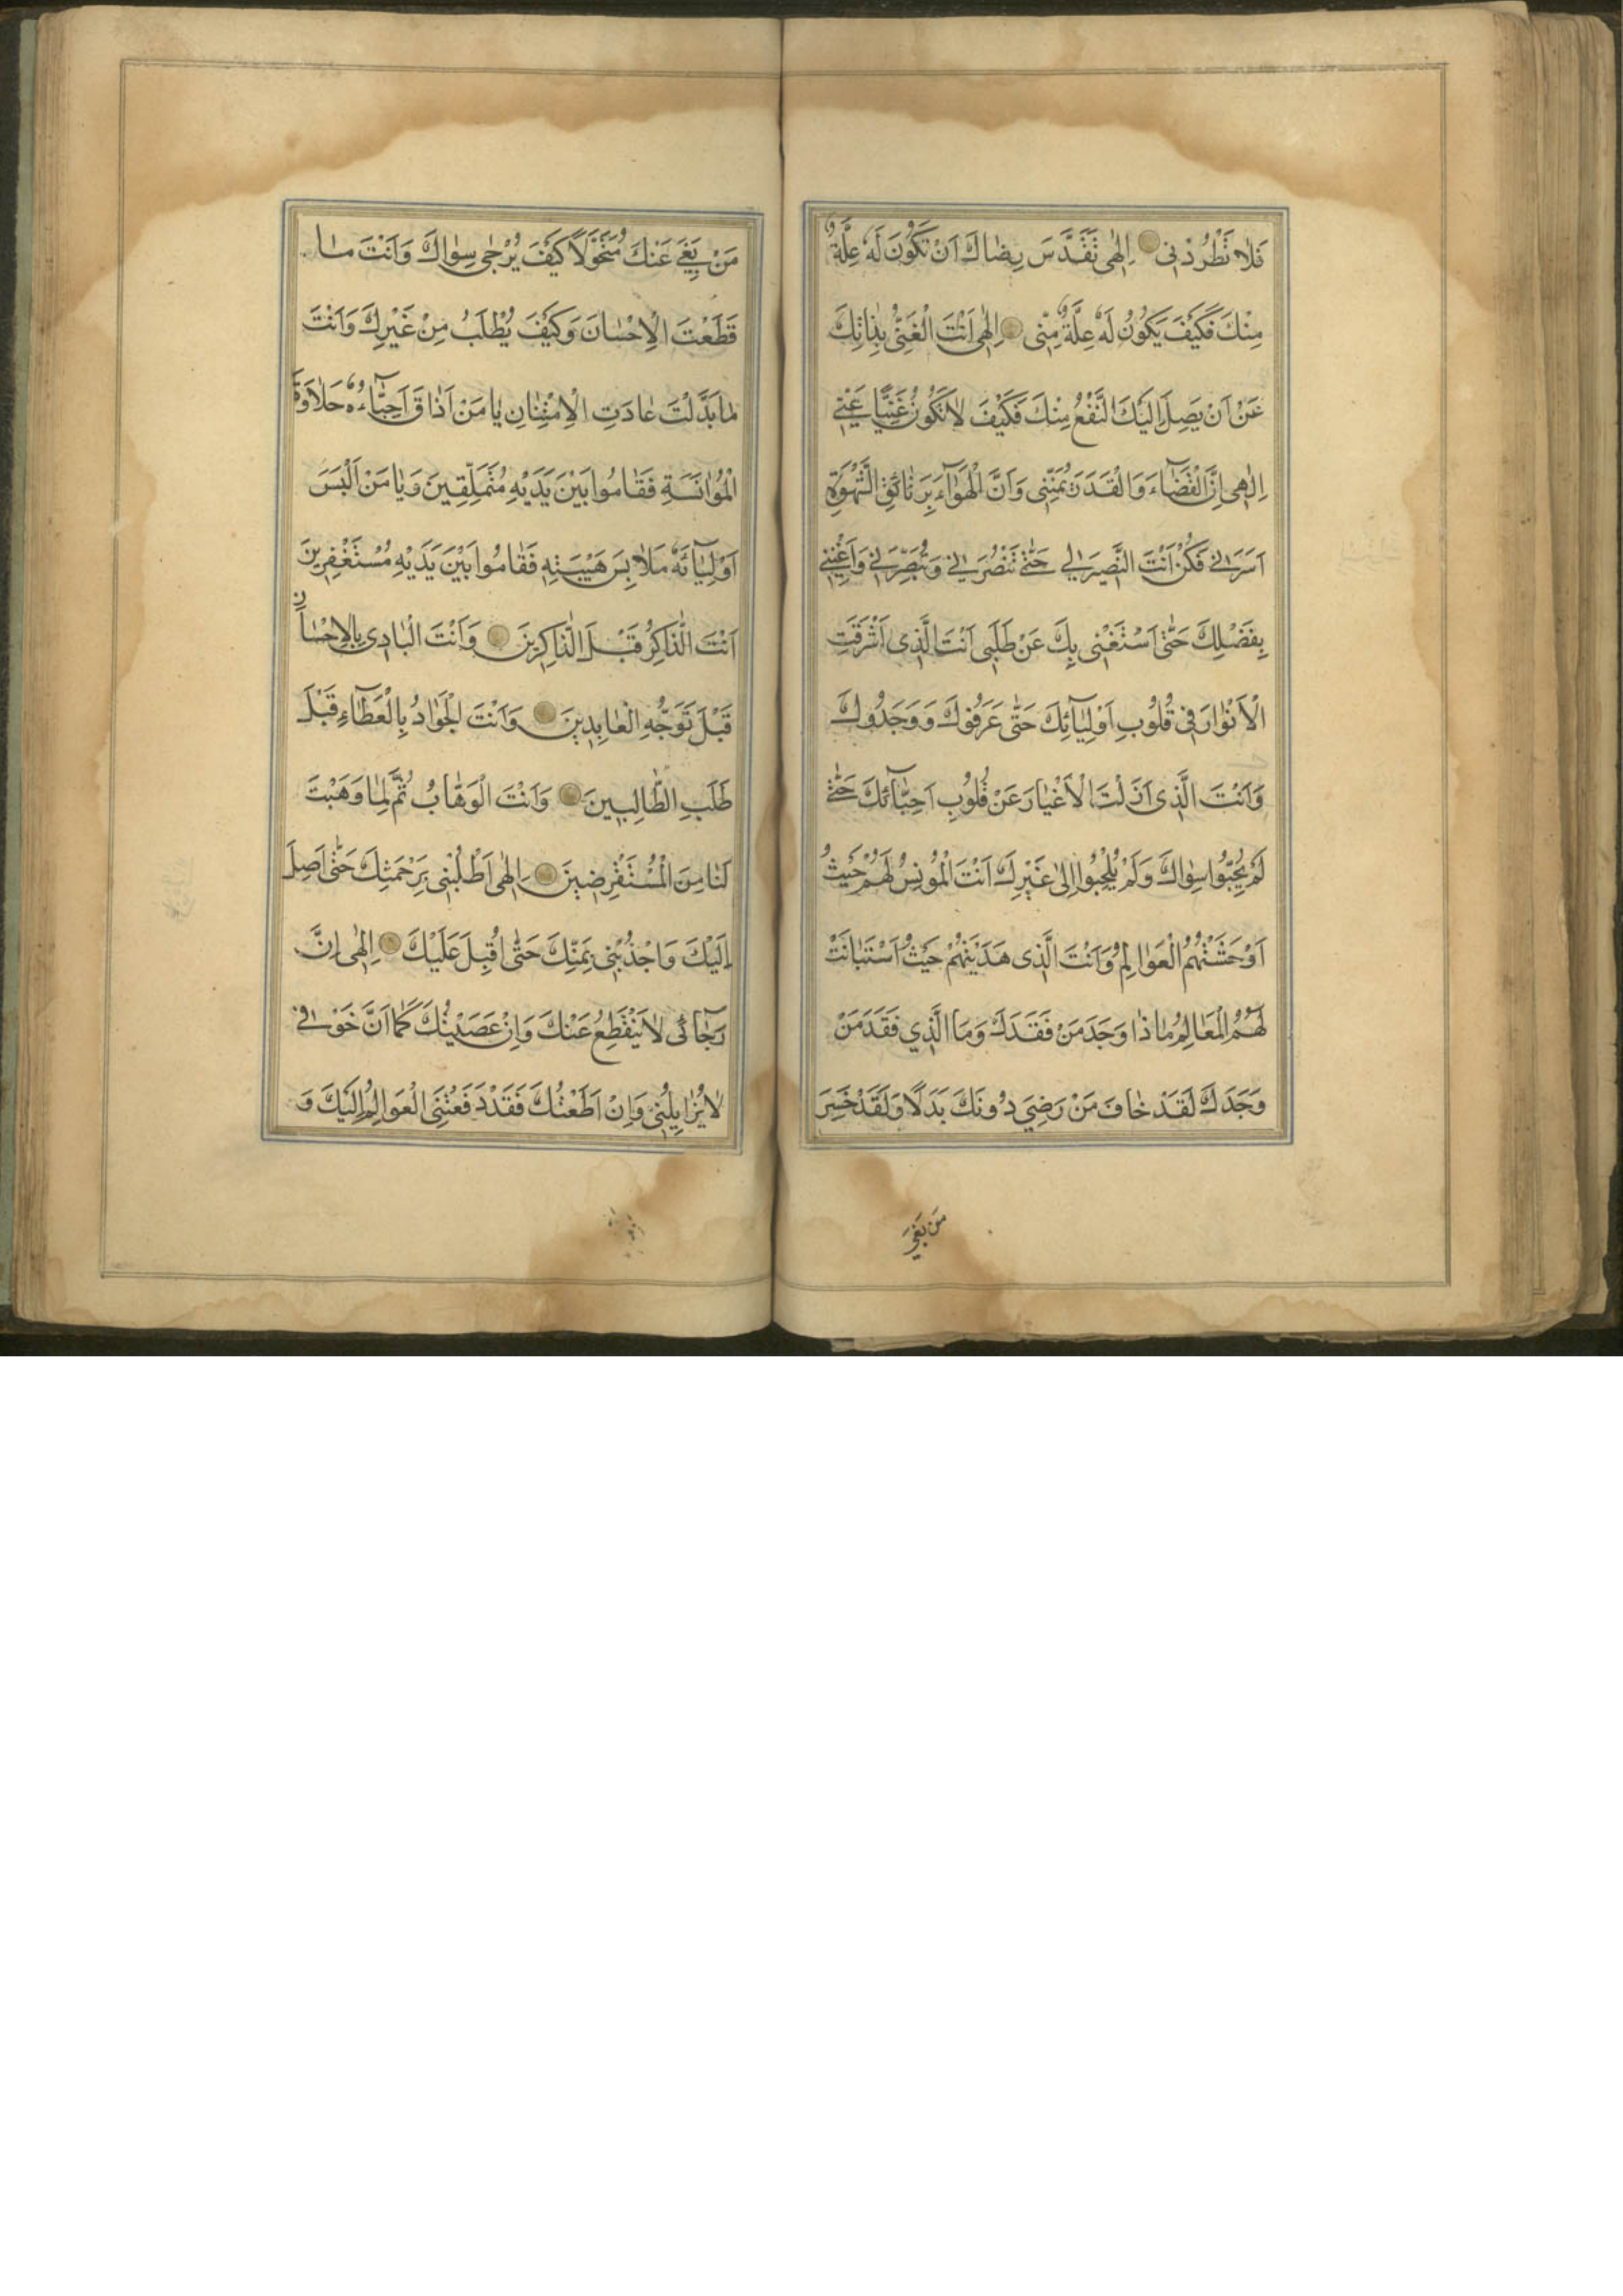 فَلا تَطْرُدْنى اِلٰهى تَقَدَّسَ رِضاكَ اَنْ تَكُونَ لَهُ عِلَّةٌ
مِنْكَ فَكَيْفَ يَكُونُ لَهُ عِلَّةٌ مِنّى اِلٰهى اَنْتَ الْغَنِىُّ بِذاتِكَ
عَنْ اَنْ يَصِلَ اِلَيْكَ النَّفْعُ مِنْكَ فَكَيْفَ لا تَكُونُ غَنِيًّا عَنّى
اِلٰهى اِنَّ الْقَضآءَ وَالْقَدَرَ يُمَنّينى وَاِنَّ الْهَوآءَ بِوَثائِقِ الشَّهْوَةِ
اَسَرَنى فَكُنْ اَنْتَ النَّصيرَ لى حَتّى تَنْصُرَنى وَتُبَصِّرَنى وَاَغْنِنى
بِفَضْلِكَ حَتّى اَسْتَغْنِىَ بِكَ عَنْ طَلَبى اَنْتَ الَّذى اَشْرَقْتَ
الْاَنْوارَ فى قُلُوبِ اَوْلِيآئِكَ حَتّى عَرَفُوكَ وَوَجَدُوكَ
وَاَنْتَ الَّذى اَزَلْتَ الْاَغْيارَ عَنْ قُلُوبِ اَحِبّآئِكَ حَتّى
لَمْ يُحِبُّوا سِواكَ وَلَمْ يُلْجِئُوا اِلى غَيْرِكَ اَنْتَ الْمُونِسُ لَهُمْ حَيْثُ
اَوْحَشَتْهُمُ الْعَوالِمُ وَاَنْتَ الَّذى هَدَيْتَهُمْ حَيْثُ اسْتَبانَتْ
لَهُمُ الْمَعالِمُ ماذا وَجَدَ مَنْ فَقَدَكَ وَمَا الَّذي فَقَدَ مَنْ
وَجَدَكَ لَقَدْ خافَ مَنْ رَضِيَ دُونَكَ بَدَلًا وَلَقَدْ خَسِرَ
مَن بَغى
مَنْ بَغى عَنْكَ مُتَحَوِّلًا كَيْفَ يُرْجى سِواكَ وَاَنْتَ ما
قَطَعْتَ الْاِحْسانَ وَكَيْفَ يُطْلَبُ مِنْ غَيْرِكَ وَاَنْتَ
ما بَدَّلْتَ عادَتَ الْاِمْتِنانِ يا مَنْ اَذاقَ اَحِبّآءَهُ حَلاوَةَ
الْمُوانَسَةِ فَقامُوا بَيْنَ يَدَيْهِ مُتَمَلِّقينَ وَيا مَنْ اَلْبَسَ
اَوْلِيآئَهُ مَلابِسَ هَيْبَتِهِ فَقامُوا بَيْنَ يَدَيْهِ مُسْتَغْفِرينَ
اَنْتَ الذّاكِرُ قَبْلَ الذّاكِرينَ وَاَنْتَ الْبادى بِالْاِحْسانِ
قَبْلَ تَوَجُّهِ الْعابِدينَ وَاَنْتَ الْجَوادُ بِالْعَطآءِ قَبْلَ
طَلَبِ الطّالِبينَ وَاَنْتَ الْوَهّابُ ثُمَّ لِما وَهَبْتَ
لَنا مِنَ الْمُسْتَقْرِضينَ اِلٰهى اُطْلُبْنى بِرَحْمَتِكَ حَتّى اَصِلَ
اِلَيْكَ وَاجْذُبْنى بِمَنِّكَ حَتّى اُقْبِلَ عَلَيْكَ اِلٰهى اِنَّ
رَجآئى لا يَنْقَطِعُ عَنْكَ وَاِنْ عَصَيْتُكَ كَما اَنَّ خَوْفى
لا يُزايِلُنى وَاِنْ اَطَعْتُكَ فَقَدْ دَفَعَتْنِى الْعَوالِمُ اِلَيْكَ وَ